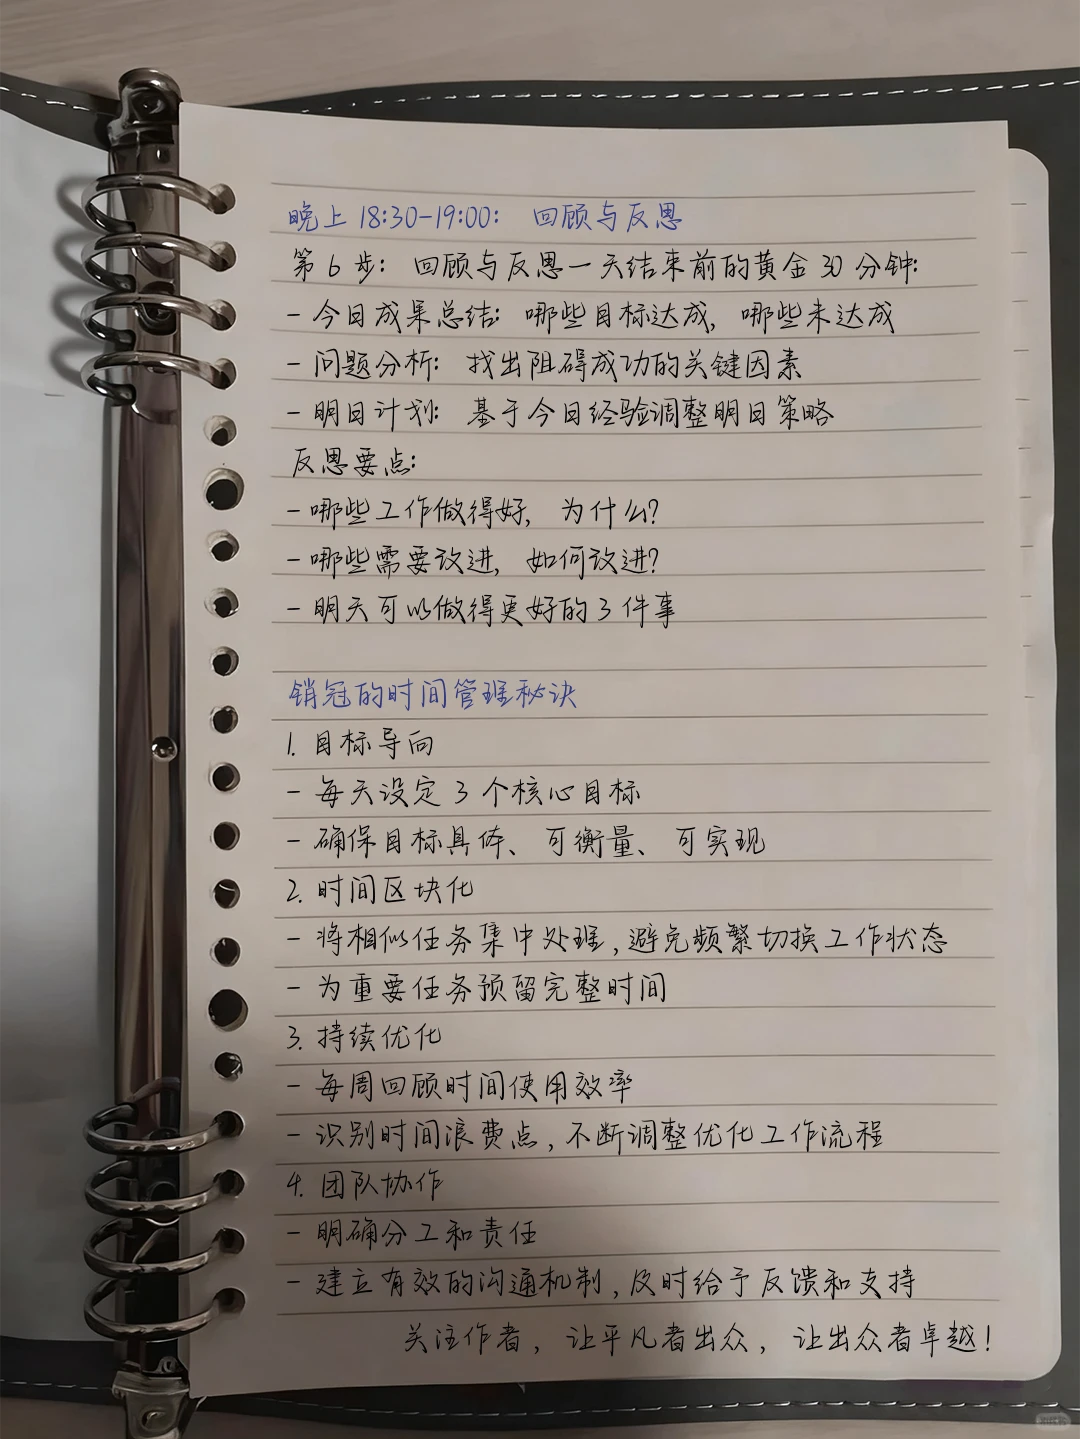 晚上 18:30-19:00: 回顾与反思
第 6 步: 回顾与反思一天结束前的黄金 30 分钟:
- 今日成果总结: 哪些目标达成, 哪些未达成
- 问题分析: 找出阻碍成功的关键因素
- 明日计划: 基于今日经验调整明日策略
反思要点:
- 哪些工作做得好, 为什么?
- 哪些需要改进, 如何改进?
- 明天可以做得更好的 3 件事
销冠的时间管理秘诀
1. 目标导向
- 每天设定 3 个核心目标
- 确保目标具体、可衡量、可实现
2. 时间区块化
- 将相似任务集中处理, 避免频繁切换工作状态
- 为重要任务预留完整时间
3. 持续优化
- 每周回顾时间使用效率
- 识别时间浪费点, 不断调整优化工作流程
4. 团队协作
- 明确分工和责任
- 建立有效的沟通机制, 及时给予反馈和支持
关注作者, 让平凡者出众, 让出众者卓越!